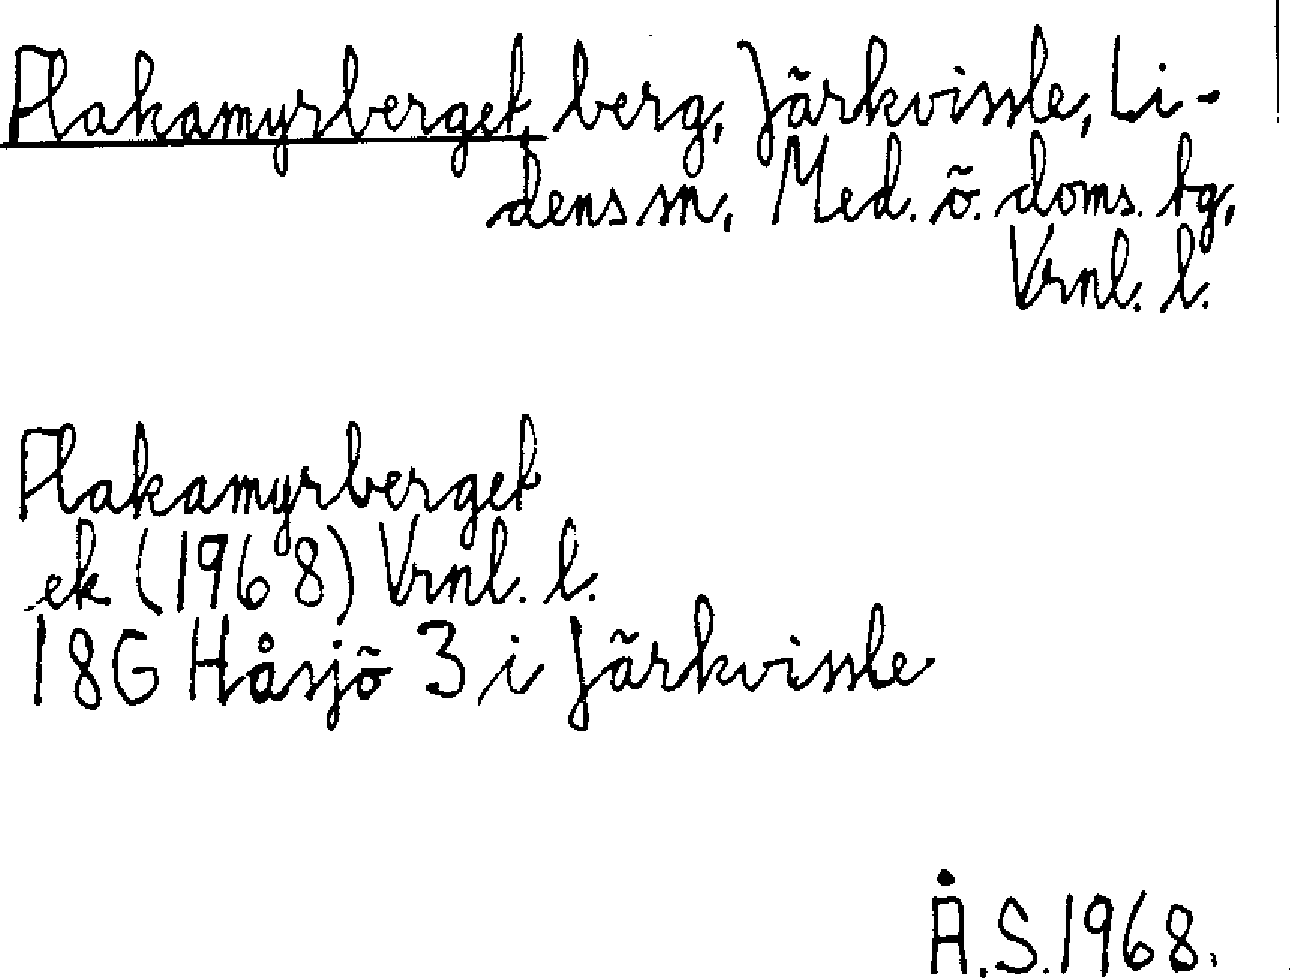 Flakamyrberget, berg, Järkvissle, Li-
dens sn, Med. ö. doms. tg,
Vrnl. l.
Flakamyrberget
ek (1968) Vrnl. l.
18G Håsjö 3 i Järkvissle
Å.S.1968.